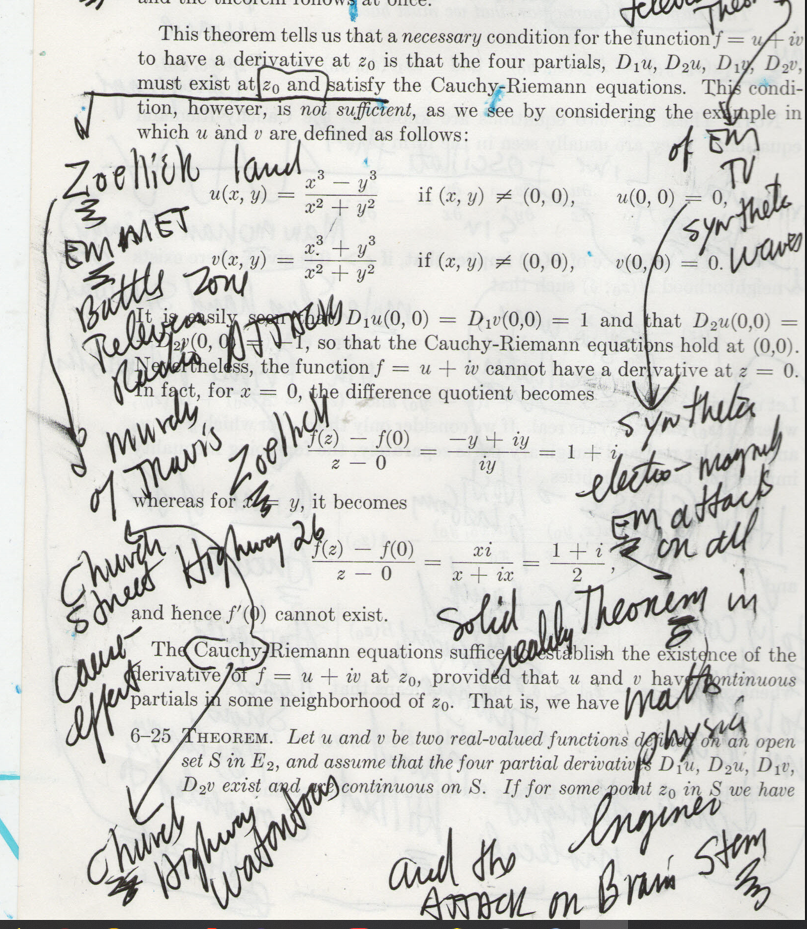 and the theorem follows at once.
Theorem
This theorem tells us that a necessary condition for the function f = u + iv
to have a derivative at z₀ is that the four partials, D₁u, D₂u, D₁v, D₂v,
must exist at z₀ and satisfy the Cauchy-Riemann equations. This condi-
tion, however, is not sufficient, as we see by considering the example in
which u and v are defined as follows:
of EM
TV
synthetic
waves
Zoellick land
u(x, y) = (x³ − y³)/(x² + y²) if (x, y) ≠ (0, 0), u(0, 0) = 0,
EMMET
v(x, y) = (x³ + y³)/(x² + y²) if (x, y) ≠ (0, 0), v(0, 0) = 0.
Battle Zone
Television
Radio ATTACK
It is easily seen that D₁u(0, 0) = D₁v(0,0) = 1 and that D₂u(0,0) =
₂v(0, 0) = −1, so that the Cauchy-Riemann equations hold at (0,0).
Nevertheless, the function f = u + iv cannot have a derivative at z = 0.
In fact, for x = 0, the difference quotient becomes
murder
of Travis
Zoellick
(f(z) − f(0))/(z − 0) = (−y + iy)/(iy) = 1 + i,
synthetic
electro-magnetic
EM attack
on all
whereas for x = y, it becomes
Church
Street Highway 26
(f(z) − f(0))/(z − 0) = (xi)/(x + ix) = (1 + i)/2,
and hence f′(0) cannot exist.
solid
reality Theorem in
math
physics
Engineer
cause-
effect
The Cauchy-Riemann equations suffice to establish the existence of the
derivative of f = u + iv at z₀, provided that u and v have continuous
partials in some neighborhood of z₀. That is, we have
6–25 THEOREM. Let u and v be two real-valued functions defined on an open
set S in E₂, and assume that the four partial derivatives D₁u, D₂u, D₁v,
D₂v exist and are continuous on S. If for some point z₀ in S we have
Church
Highway
and the
ATTACK on Brain Stem